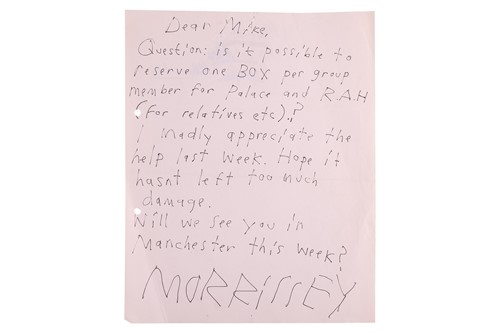 Dear Mike,
Question: is it possible to
reserve one BOX per group
member for Palace and R.A.H
(for relatives etc).?
I madly appreciate the
help last week. Hope it
hasnt left too much
damage.
Will we see you in
Manchester this week?
MORRISSEY